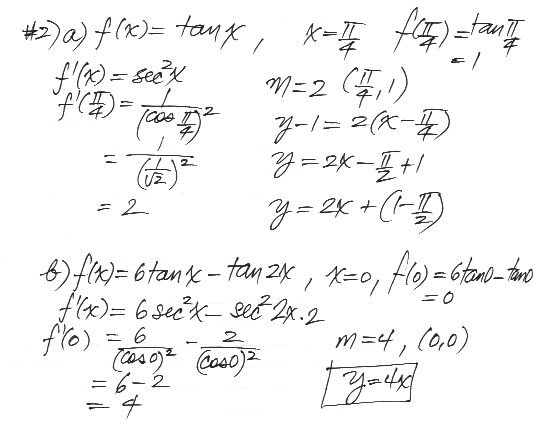 #2) a) f(x) = tan x, x = π/4 f(π/4) = tan π/4 = 1
f'(x) = sec²x
f'(π/4) = 1/(cos π/4)² m = 2 (π/4, 1)
= 1/(1/√2)² y - 1 = 2(x - π/4)
y = 2x - π/2 + 1
= 2 y = 2x + (1 - π/2)
b) f(x) = 6 tan x - tan 2x, x = 0, f(0) = 6 tan 0 - tan 0 = 0
f'(x) = 6 sec²x - sec²2x · 2
f'(0) = 6/(cos 0)² - 2/(cos 0)² m = 4, (0,0)
= 6 - 2 y = 4x
= 4